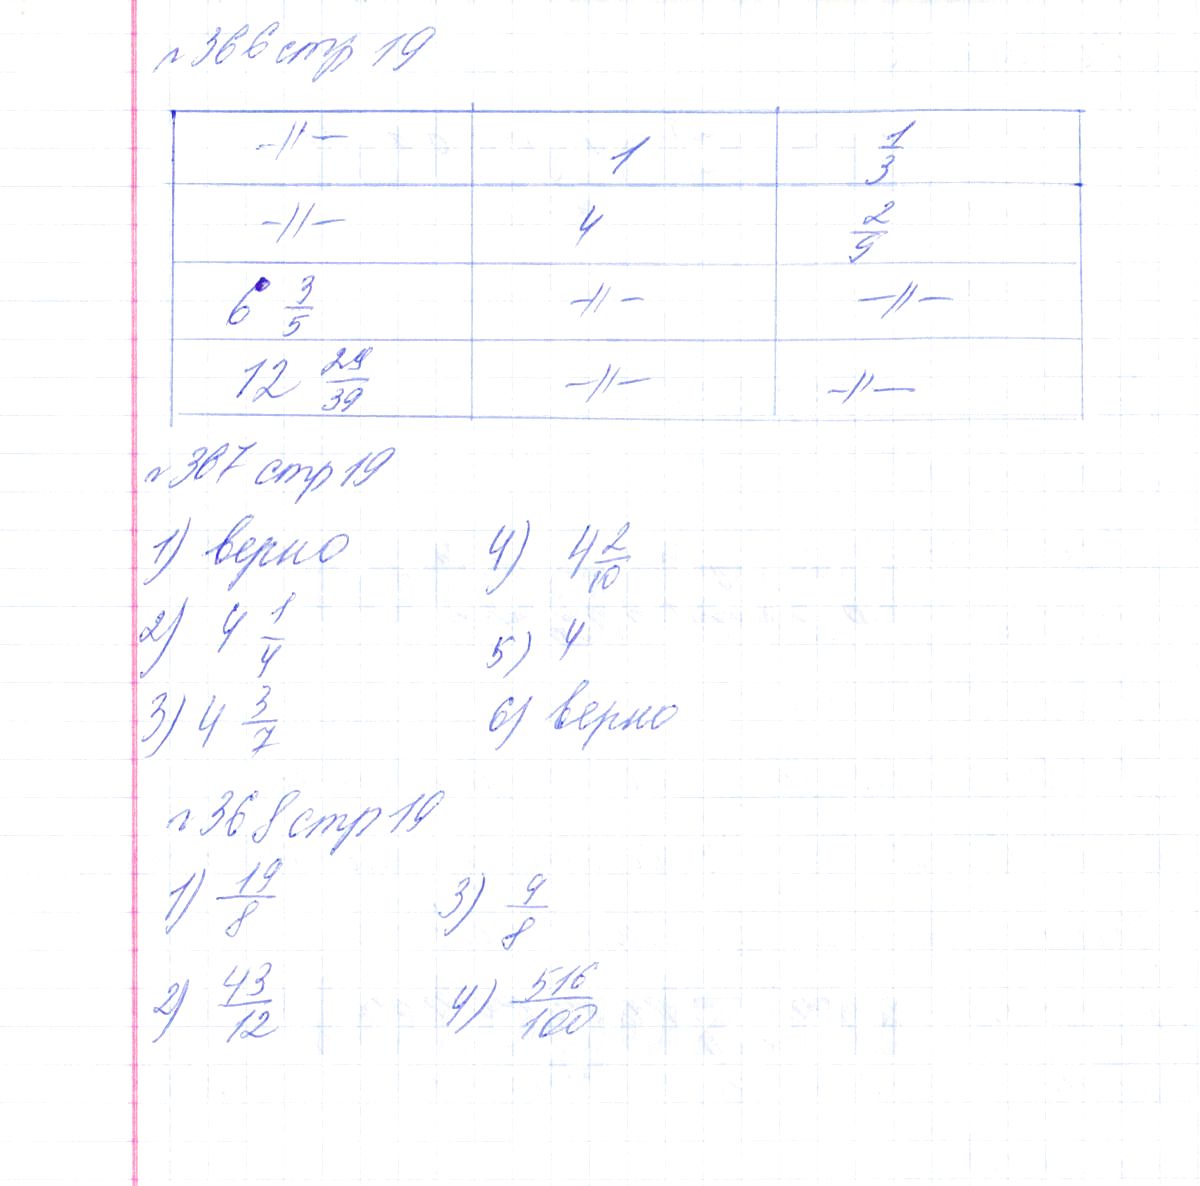 № 366 стр 19
-//- 1 1/3
-//- 4 2/9
6 3/5 -//- -//-
12 29/39 -//- -//-
№ 367 стр 19
1) верно 4) 4 2/10
2) 4 1/4 5) 4
3) 4 3/7 6) верно
№ 368 стр 19
1) 19/8 3) 9/8
2) 43/12 4) 516/100